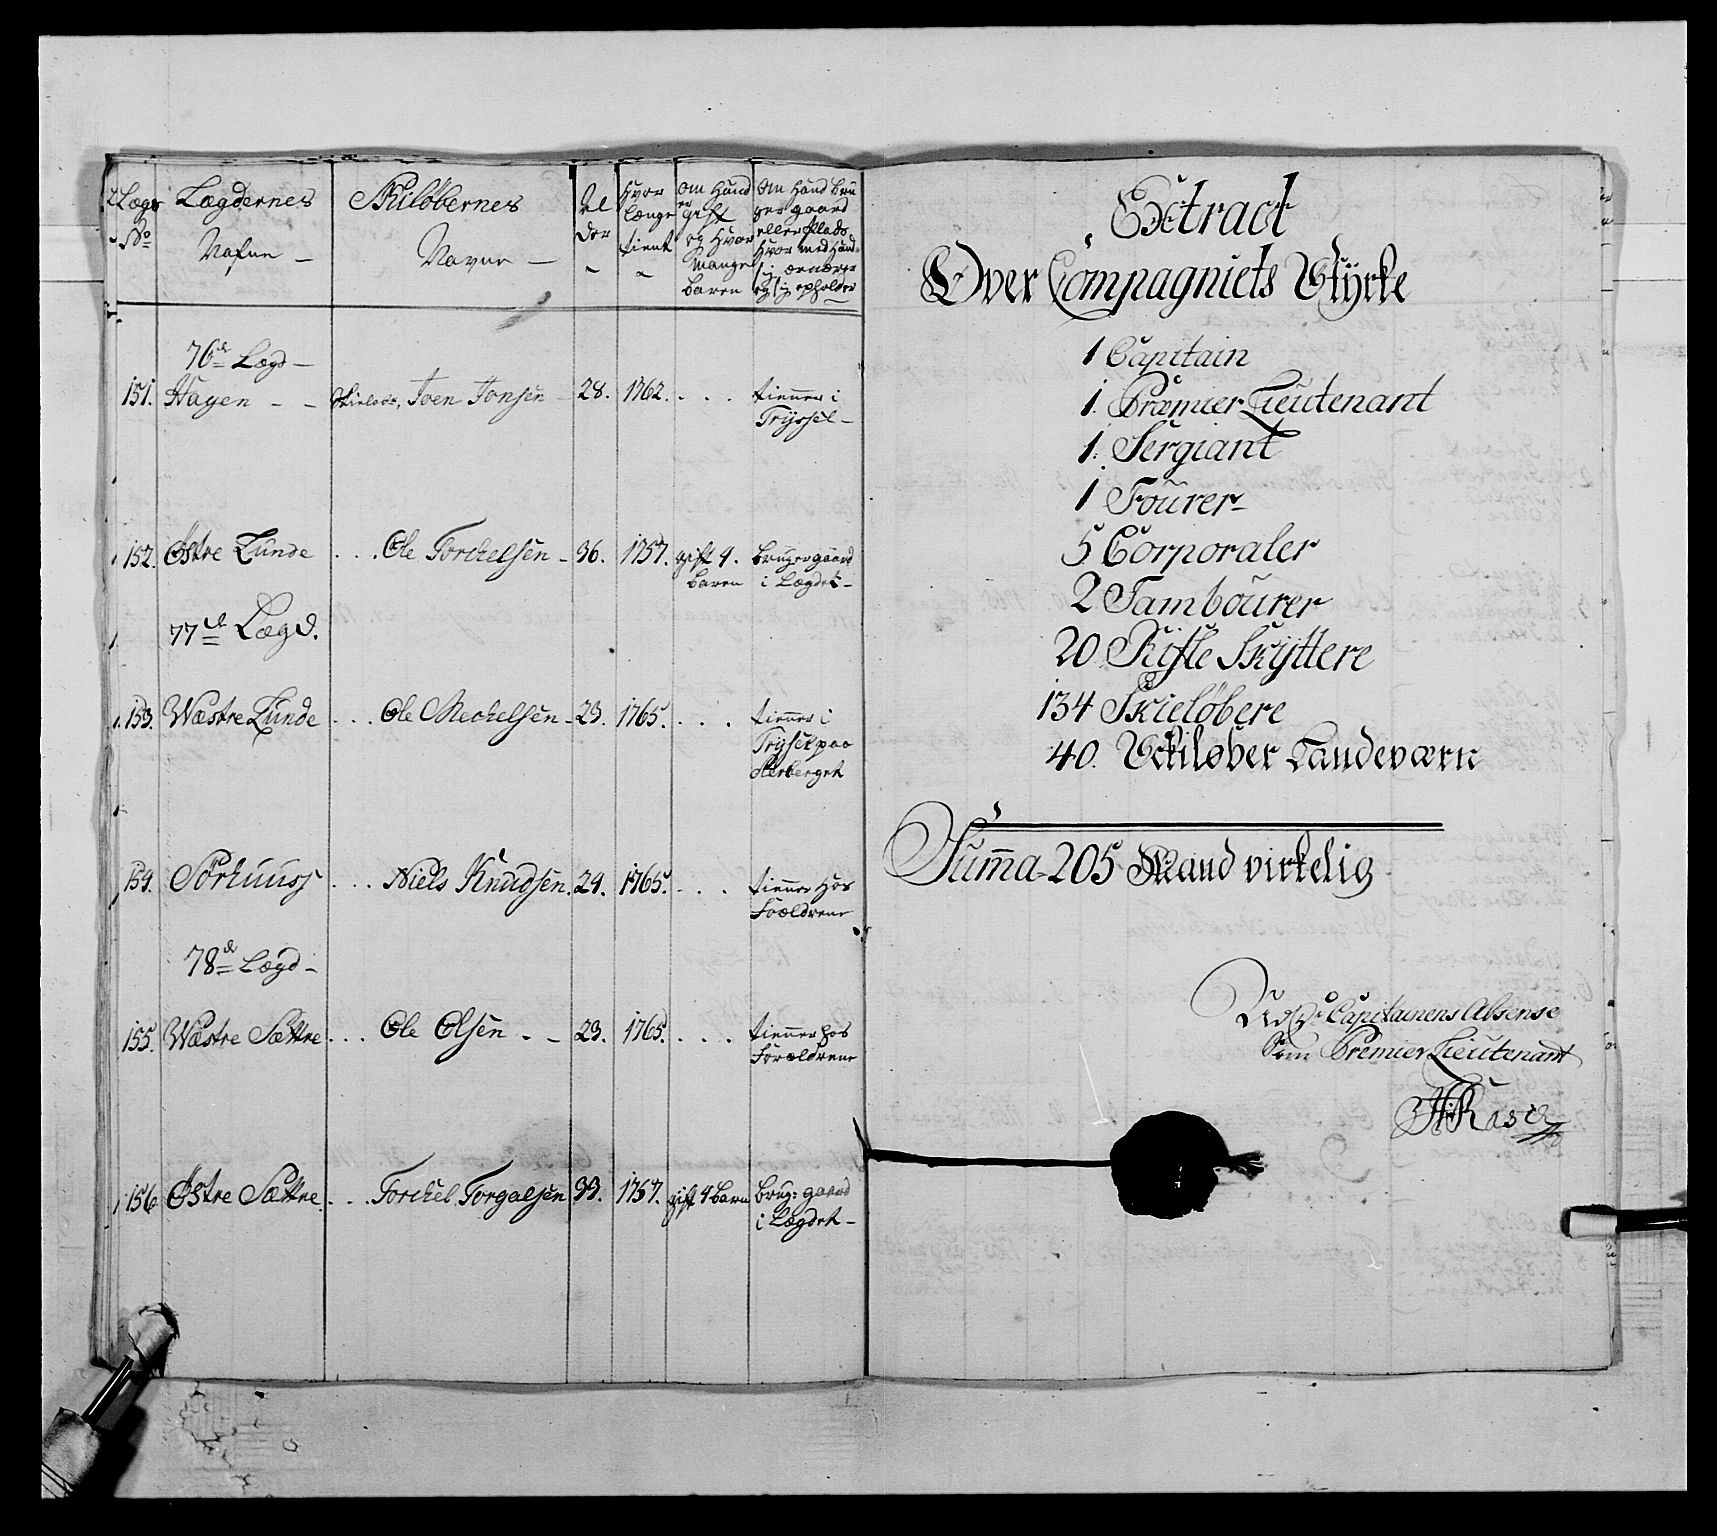 Lægs
No
Lægdernes
Nafne –
Skiløbernes
Navne –
Al
der
Hvor
længe
tient
om Hand
er gift
og Hvor
mange
baren
Om Hand bru
ger gaard
eller Plads
Hvor med Hand
sig ernærer
og sig opholder
76de Lægd –
151. Hagen – – Skieløb. Joen Jonsen – 28. 1762. . . . tienner i
Tryssel –
152. Østre Lunde . . . Ole Torchelsen – 36. 1757. gift 4. bruger gaard
baren i Lægdet –
77de Lægd.
153. Wæstre Lunde . . . Ole Mechelsen – 23. 1765. . . . tienner i
Trysel paa
154. Sørhuuss . . . Niels Knudsen. 24. 1765. . . . tienner Hos
Foældrene
78de Lægd –
155. Wæstre Sættre . . . Ole Olsen . – 23. 1765. . . . tienner hos
Forældrene
156 Østre Sættre . . . Torchel Torgalsen 33. 1757. gift 4 barn brug: gaard
i Lægdet –
Extract
Over Compagniets Styrke
1 Capitain
1. Præmier Lieutenant
1. Sergiant
1 Fourer
5 Corporaler
2 Tambourer
20 Rifle Skyttere
134 Skieløbere
40. Schiløber Landeværn
Summa 205 Mand virkelig
Udj Capitainens Absense
Som Premier Lieutenant